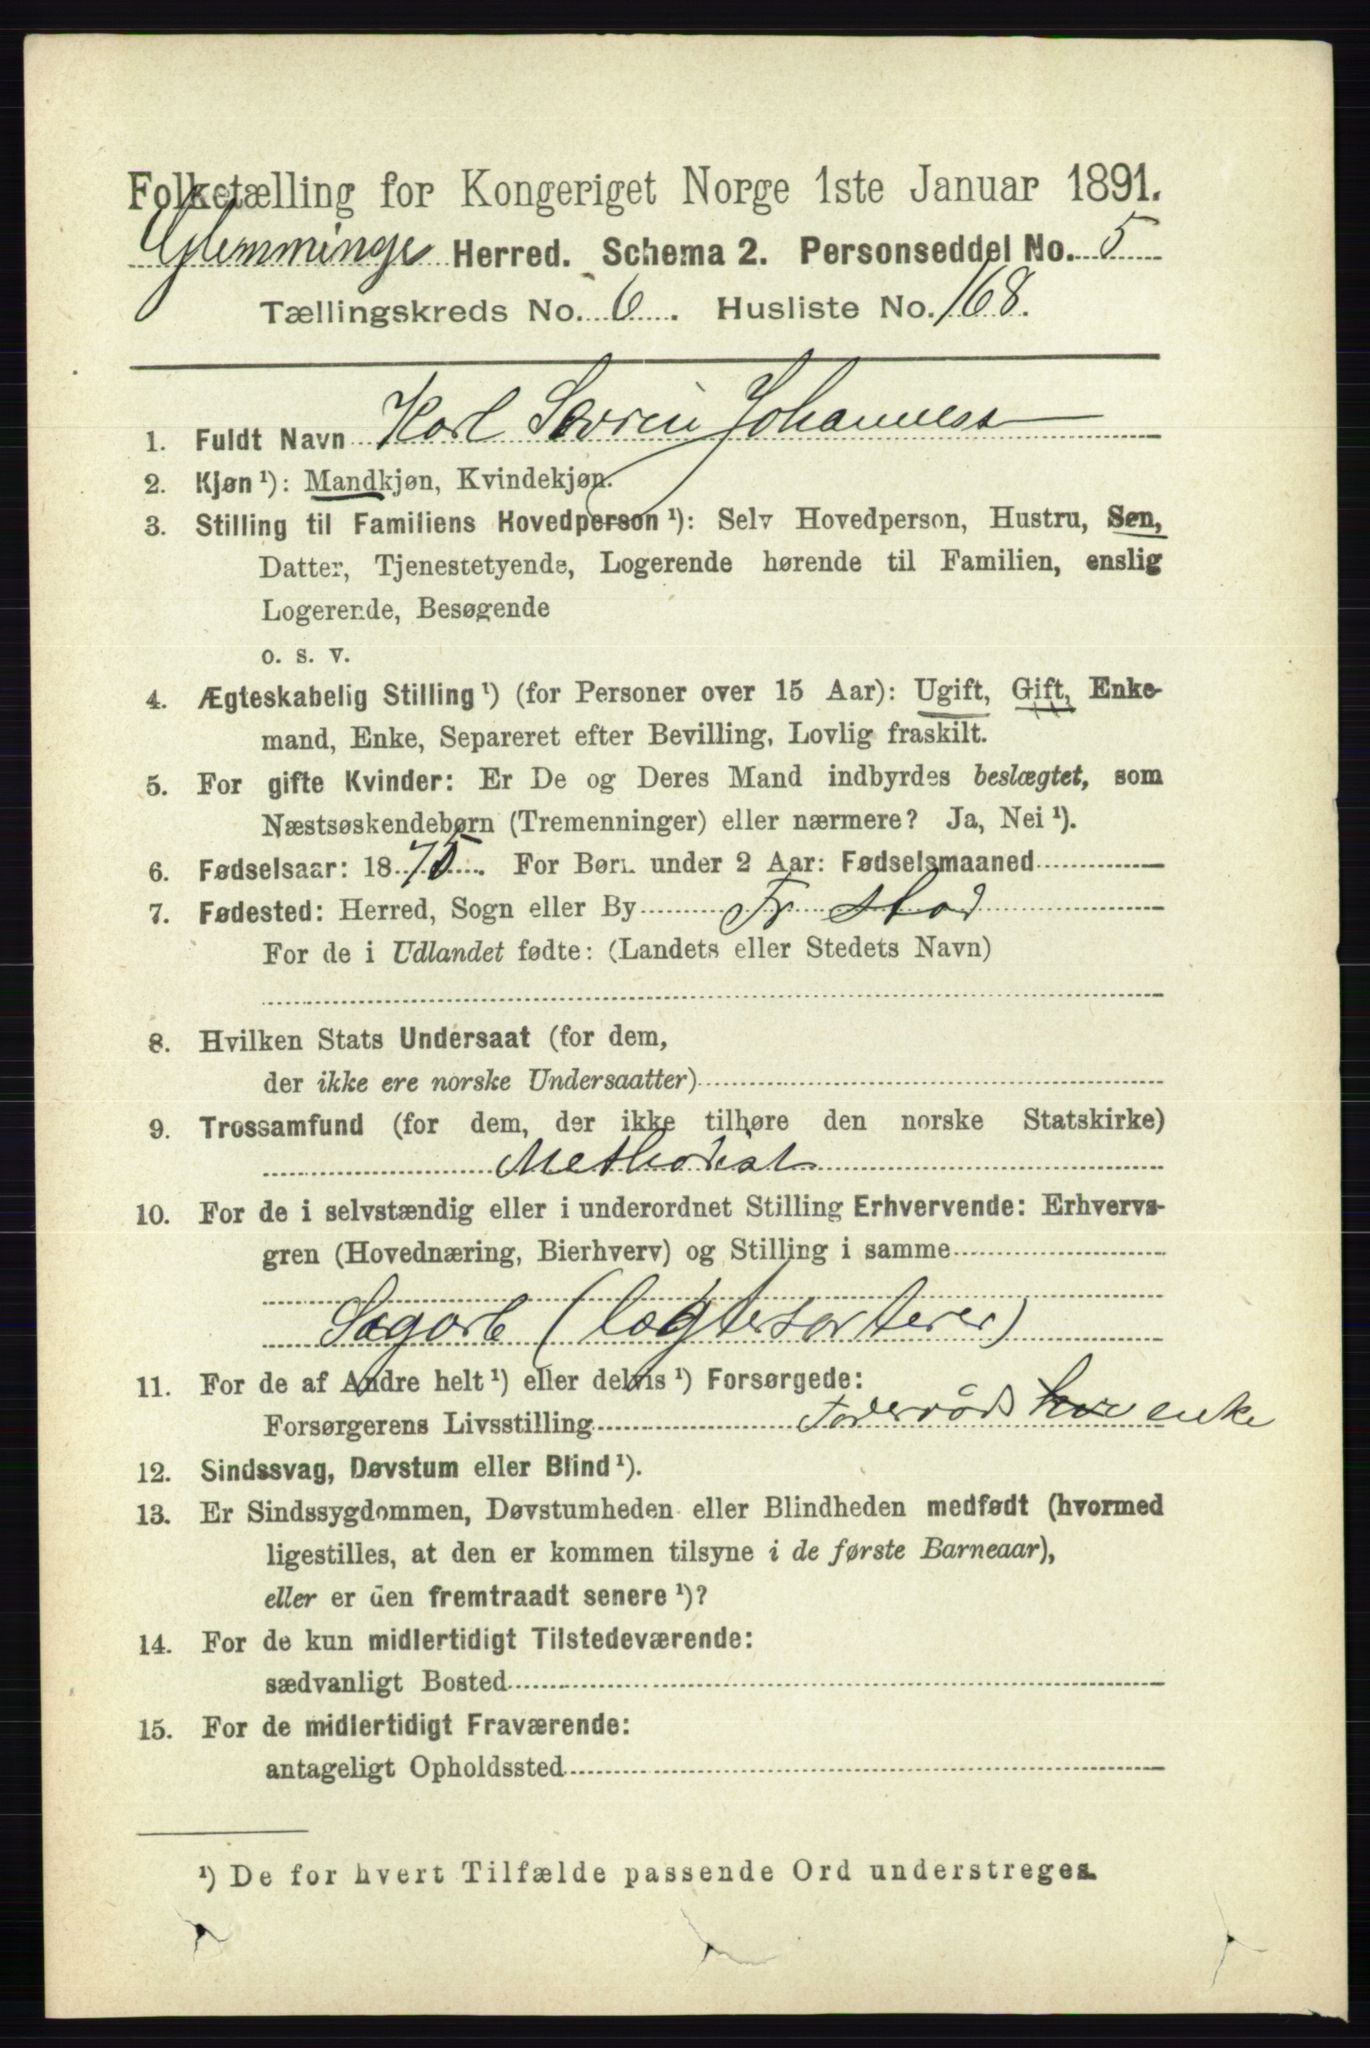 Folketælling for Kongeriget Norge 1ste Januar 1891.
Glemminge Herred. Schema 2. Personseddel No. 5
Tællingskreds No. 6. Husliste No. 168.
1. Fuldt Navn Karl Sevrin Johanness
2. Kjøn ¹): Mandkjøn, Kvindekjøn.
3. Stilling til Familiens Hovedperson ¹): Selv Hovedperson, Hustru, Søn,
Datter, Tjenestetyende, Logerende hørende til Familien, enslig
Logerende, Besøgende
o. s. v.
4. Ægteskabelig Stilling ¹) (for Personer over 15 Aar): Ugift, Gift, Enke-
mand, Enke, Separeret efter Bevilling, Lovlig fraskilt.
5. For gifte Kvinder: Er De og Deres Mand indbyrdes beslægtet, som
Næstsøskendebørn (Tremenninger) eller nærmere? Ja, Nei ¹).
6. Fødselsaar: 1875. For Børn under 2 Aar: Fødselsmaaned
7. Fødested: Herred, Sogn eller By Fr stad
For de i Udlandet fødte: (Landets eller Stedets Navn)
8. Hvilken Stats Undersaat (for dem,
der ikke ere norske Undersaatter)
9. Trossamfund (for dem, der ikke tilhøre den norske Statskirke)
Methodist
10. For de i selvstændig eller i underordnet Stilling Erhvervende: Erhvervs-
gren (Hovednæring, Bierhverv) og Stilling i samme
Sagarb (lægtersorterer)
11. For de af Andre helt ¹) eller delvis ¹) Forsørgede:
Forsørgerens Livsstilling enke
12. Sindssvag, Døvstum eller Blind ¹).
13. Er Sindssygdommen, Døvstumheden eller Blindheden medfødt (hvormed
ligestilles, at den er kommen tilsyne i de første Barneaar),
eller er den fremtraadt senere ¹)?
14. For de kun midlertidigt Tilstedeværende:
sædvanligt Bosted
15. For de midlertidigt Fraværende:
antageligt Opholdssted
¹) De for hvert Tilfælde passende Ord understreges.